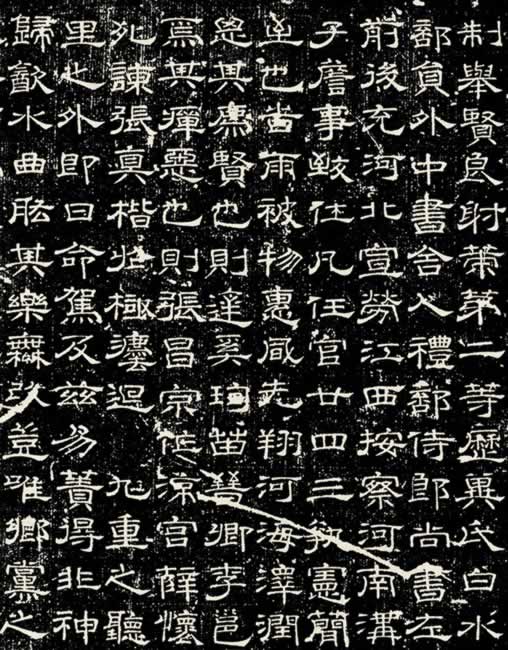 制舉賢良射策第二等歷冀氏白水
部員外中書舍人禮部侍郎尚書左
前後充河北宣勞江西按察河南溝
子詹事致仕凡任官廿四三執憲簡
直也旹雨被物惠風先翔河海澤潤
恩其薦賢也則達奚珣苗晉卿李邕
焉其癉惡也則張昌宗作涼宮薛懷
死諫張真楷於極灋迴 九重之聽
里之外即日命駕及茲易簀得非神
歸飲水曲肱其樂無改豈唯鄉黨之